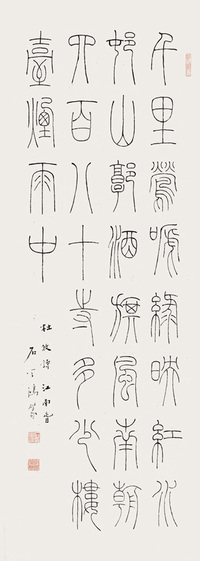 千里鶯嗁綠映紅水
邨山郭酒旗風南朝
四百八十寺多少樓
臺煙雨中
杜牧詩江南春